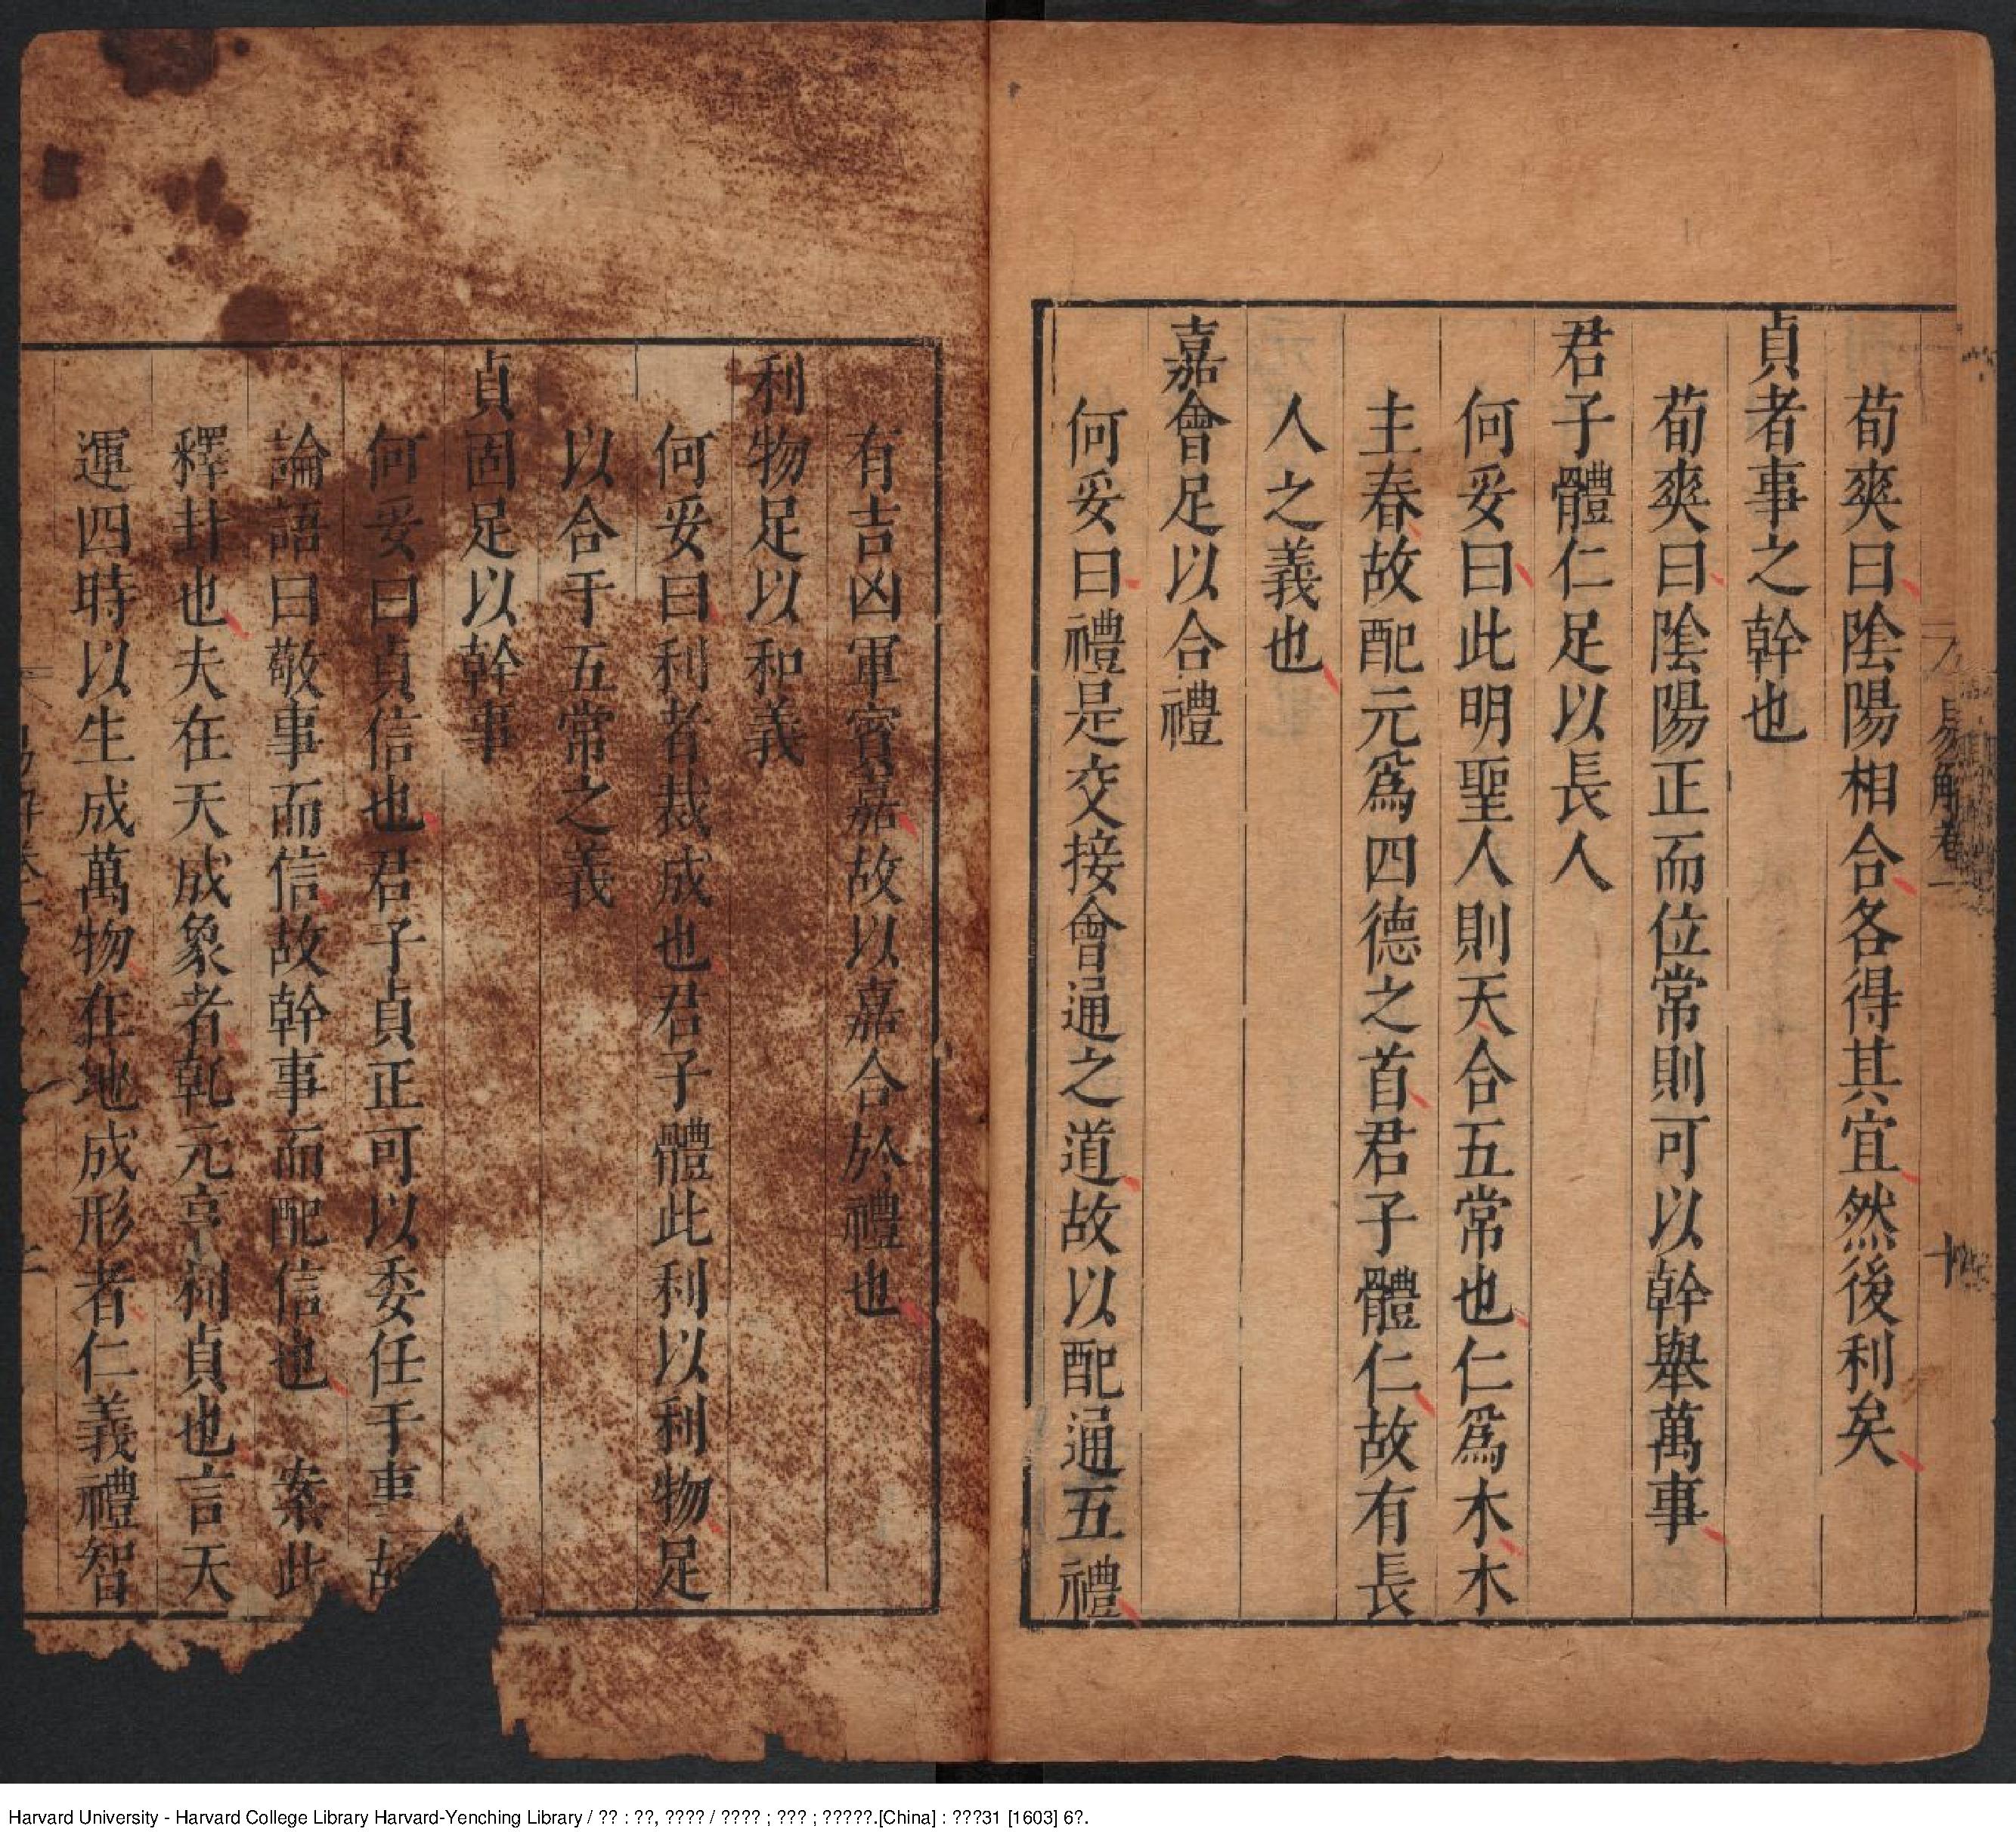 荀爽曰陰陽相合各得其宜然後利矣
貞者事之幹也
荀爽曰陰陽正而位當則可以幹舉萬事
君子體仁足以長人
何妥曰此明聖人則天合五常也仁爲木木
主春故配元爲四德之首君子體仁故有長
人之義也
嘉會足以合禮
何妥曰禮是交接會通之道故以配通五禮
有吉凶軍賓嘉故以嘉合於禮也
利物足以和義
何妥曰利者裁成也君子體此利以利物足
以合于五常之義
貞固足以幹事
何妥曰貞信也君子貞正可以委任于事故
論語曰敬事而信故幹事而配信也 案此
釋卦也夫在天成象者乾元亨利貞也言天
運四時以生成萬物在地成形者仁義禮智
易解卷一
十
Harvard University - Harvard College Library Harvard-Yenching Library / ?? : ??, ???? / ???? ; ??? ; ?????.[China] : ???31 [1603] 6?.